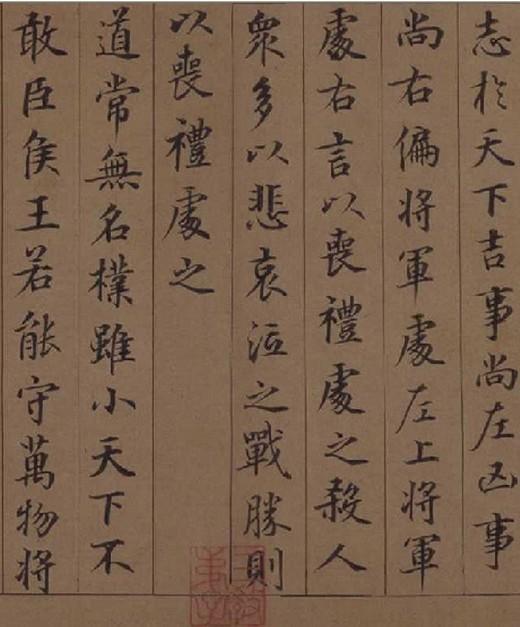 志於天下吉事尚左凶事
尚右偏将軍處左上将軍
處右言以喪禮處之殺人
衆多以悲哀泣之戰勝則
以喪禮處之
道常無名樸雖小天下不
敢臣侯王若能守萬物将